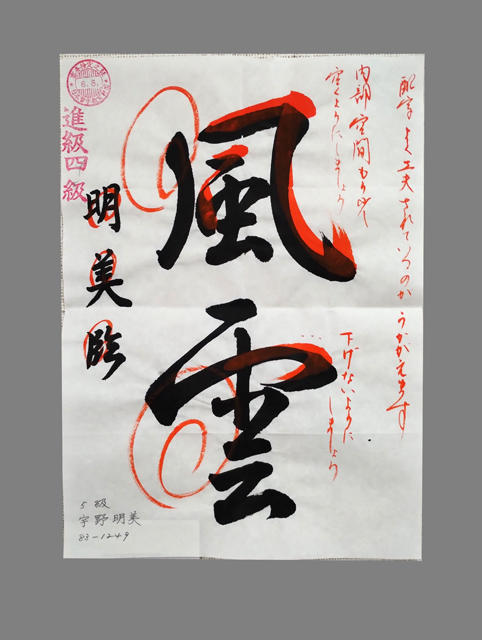 風雲
明美臨
配字よく工夫されているのがうかがえます
内部空間もう少し
空くようにしましょう
下げないように
しましょう
進級四級
6.8.
5級
宇野明美
83-1249